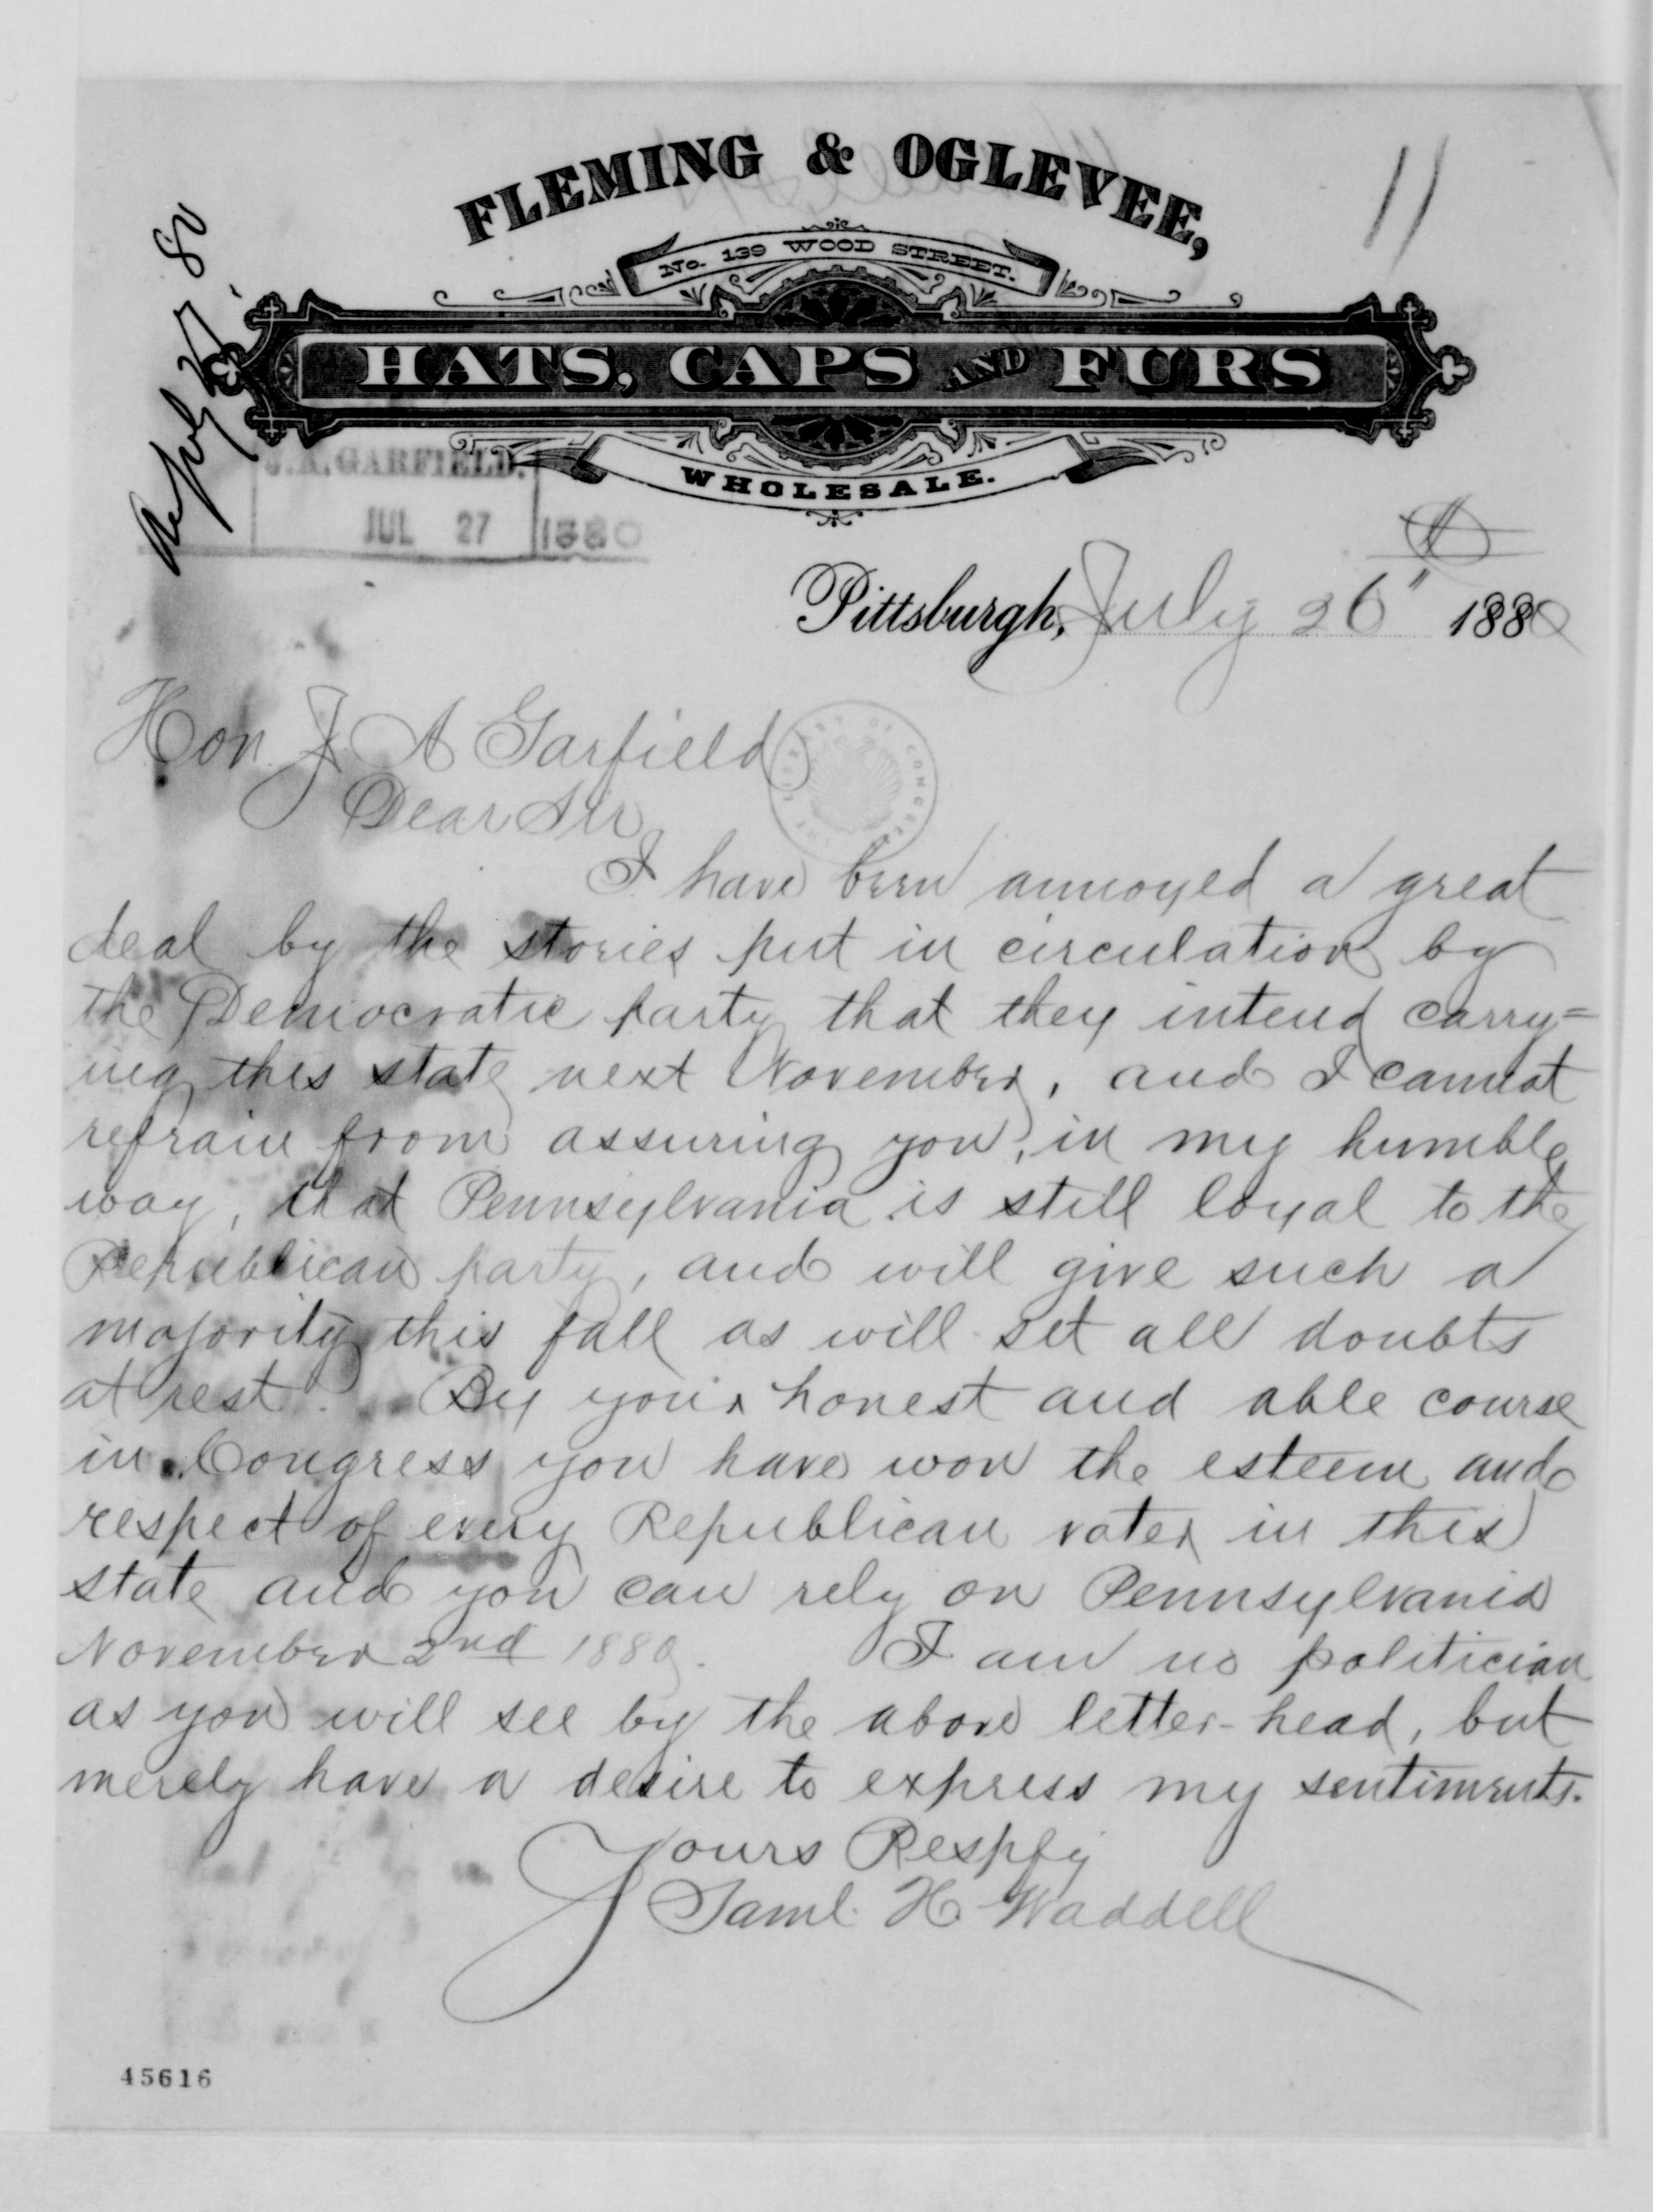 FLEMING & OGLEVEE,
No. 139 WOOD STREET.
HATS, CAPS AND FURS
WHOLESALE.
July 27, 80
J.A. GARFIELD.
JUL 27 1880
11
Pittsburgh, July 26" 1880
Hon. J A Garfield
THE LIBRARY OF CONGRESS
Dear Sir
I have been annoyed a great
deal by the stories put in circulation by
the Democratic party that they intend carry=
ing this state next November, and I cannot
refrain from assuring you, in my humble
way, that Pennsylvania is still loyal to the
Republican party, and will give such a
majority this fall as will set all doubts
at rest. By your honest and able course
in Congress you have won the esteem and
respect of every Republican voter in this
state and you can rely on Pennsylvania
November 2nd 1880. I am no politician
as you will see by the above letter-head, but
merely have a desire to express my sentiments.
Yours Respfy
Saml. H. Waddell
45616